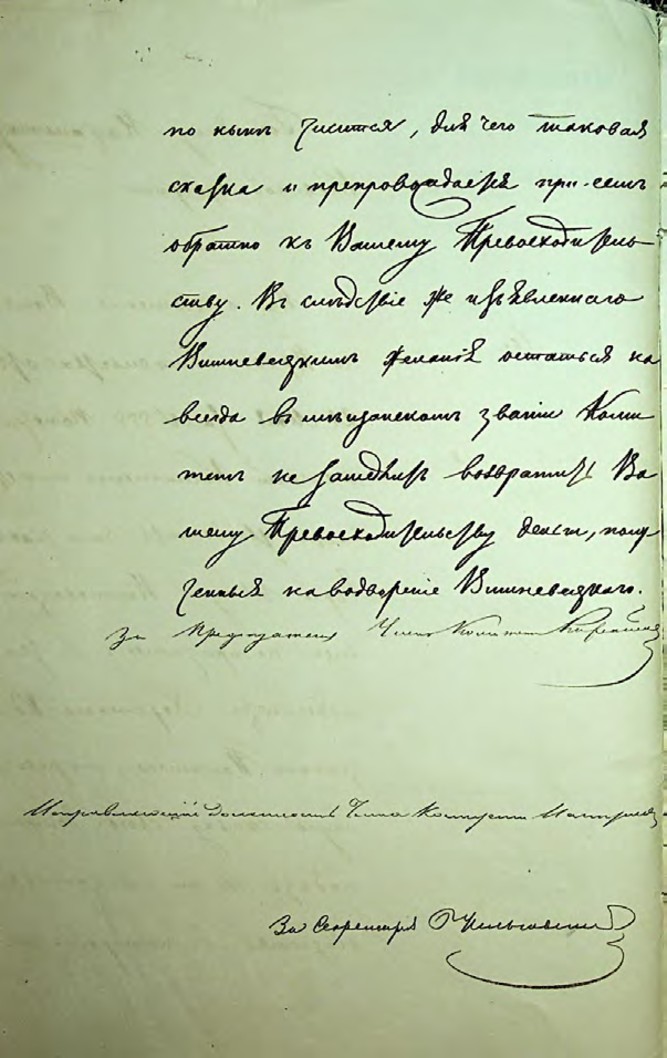 по нынѣ числится, для чего таковая
сказка и препровождается при семъ
обратно къ Вашему Превосходитель-
ству. Въ слѣдствіе же изъявленнаго
Вишневецкимъ желанія остаться на
всегда въ мѣщанскомъ званіи Коми
тетъ не замедлитъ возвратить Ва
шему Превосходительству деньги, полу
ченныя на водвореніе Вишневецкаго.
За Предсѣдателя Членъ Комитета
Исправляющій должность Члена Комитета
За Секретаря